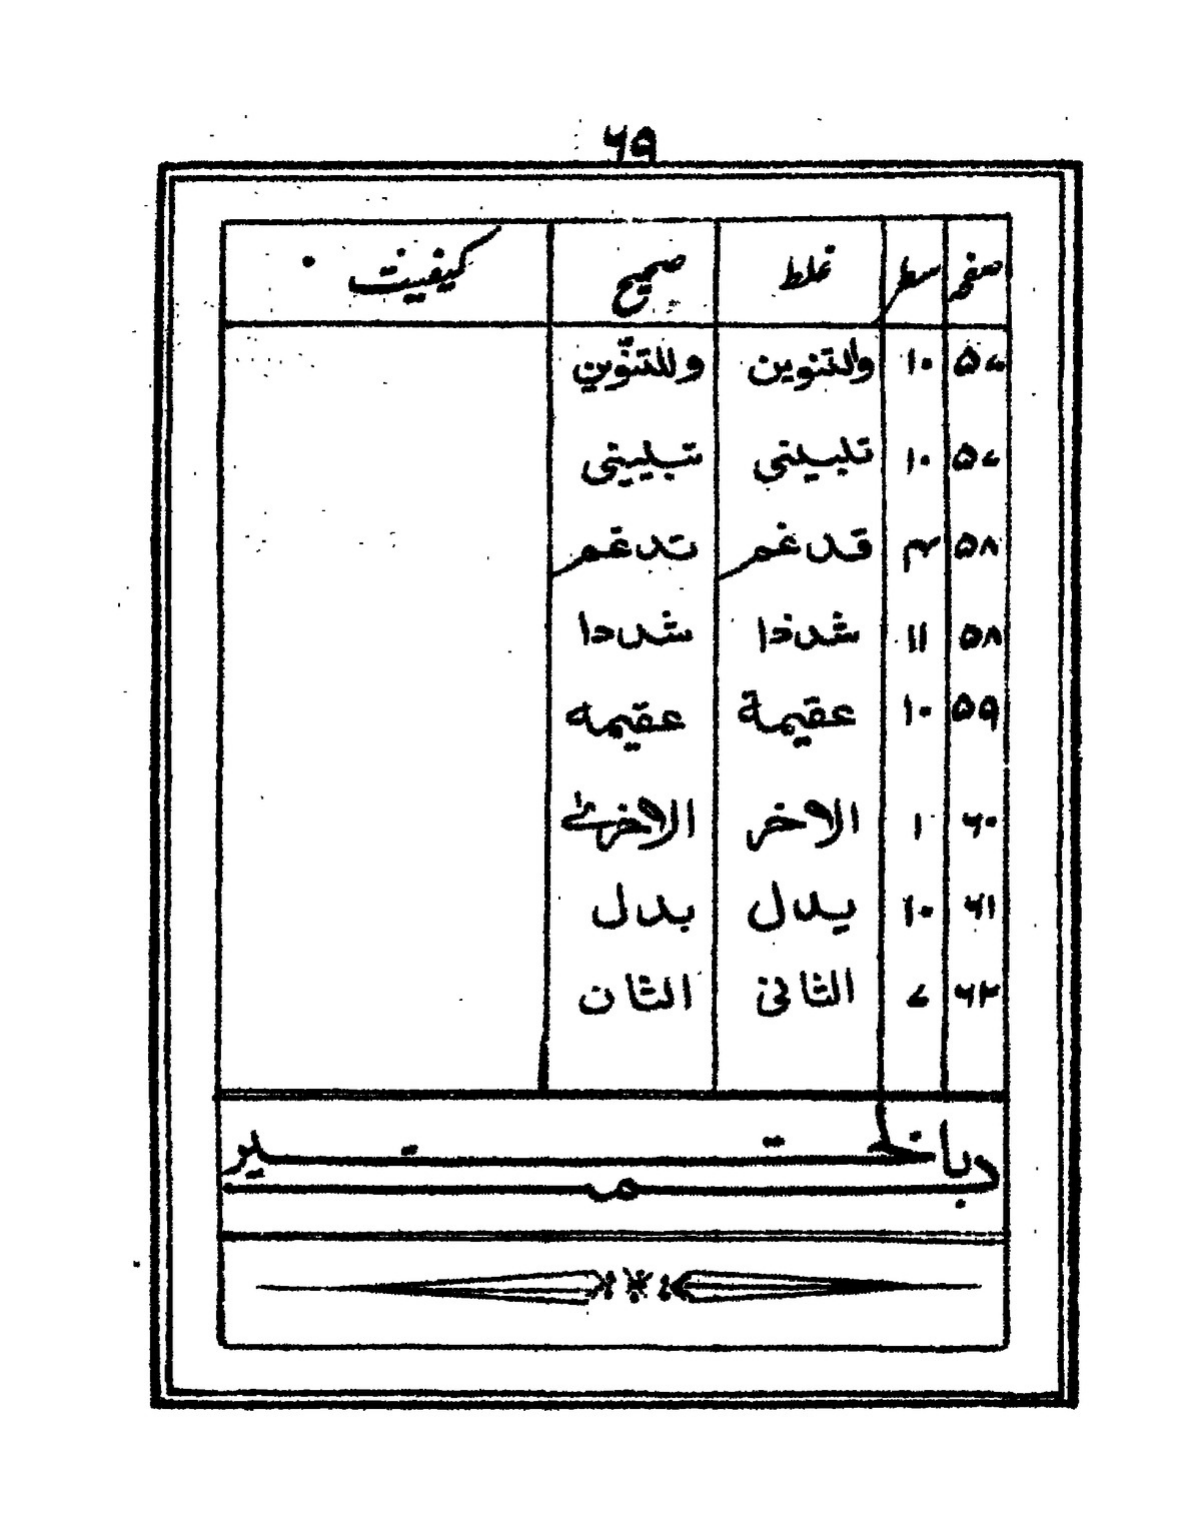 ۶۹
صفحہ سطر غلط صحیح کیفیت
۵۷ ۱۰ والتنوین وللتنوین
۵۷ ۱۰ تلیینی تبلیینی
۵۸ ۴ قدغم تدغم
۵۸ ۱۱ شدذا شددا
۵۹ ۱۰ عقیمة عقیمه
۶۰ ۱ الاخر الاخریٰ
۶۱ ۱۰ یدل بدل
۶۲ ۷ الثانی الثان
تم بالخیر